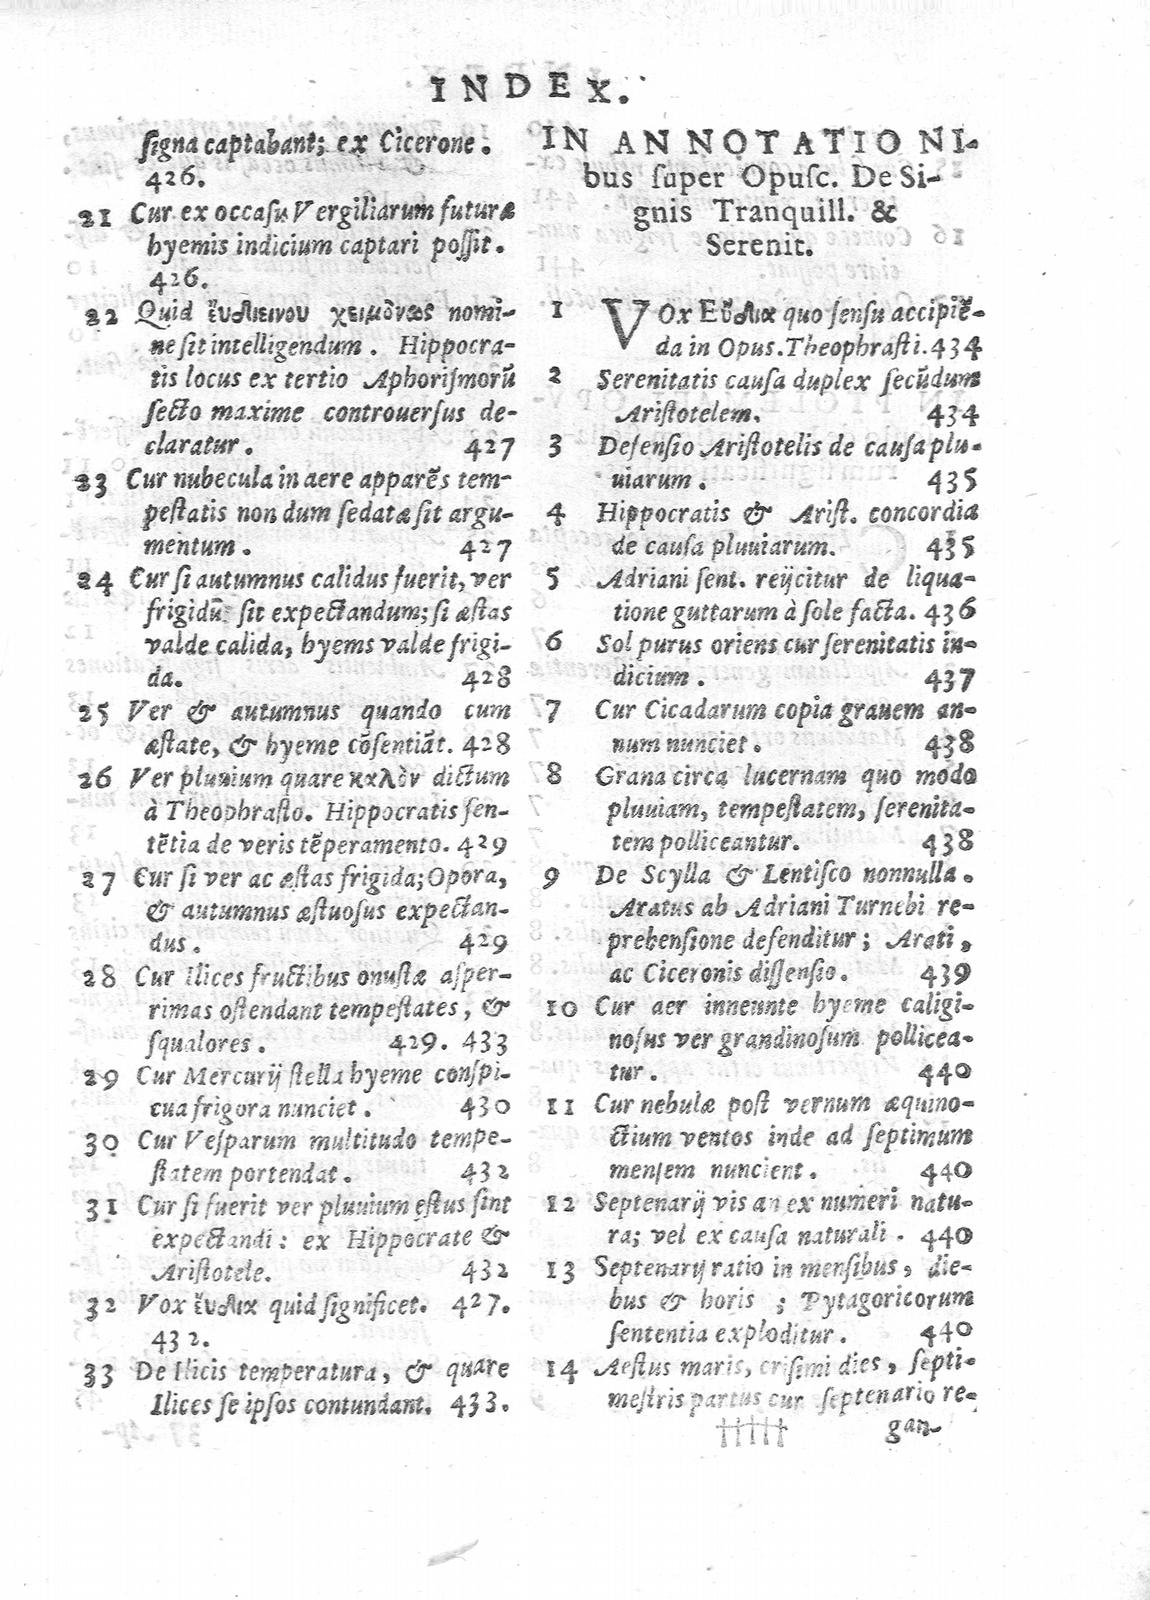 INDEX.
ſigna captabant; ex Cicerone.
426.
21 Cur ex occaſu Vergiliarum futuræ
hyemis indicium captari poſſit.
426.
22 Quid ἔυδιεινου χειμῶνος nomi-
ne ſit intelligendum. Hippocra-
tis locus ex tertio Aphoriſmorũ
ſecto maxime controuerſus de-
claratur. 427
23 Cur nubecula in aere apparẽs tem-
peſtatis non dum ſedatæ ſit argu-
mentum. 427
24 Cur ſi autumnus calidus fuerit, ver
frigidũ ſit expectandum; ſi æſtas
valde calida, hyems valde frigi-
da. 428
25 Ver & autumnus quando cum
æſtate, & hyeme cõſentiãt. 428
26 Ver pluuium quare καλὸν dictum
à Theophraſto. Hippocratis ſen-
tẽtia de veris tẽperamento. 429
27 Cur ſi ver ac æſtas frigida; Opora,
& autumnus æſtuoſus expectan-
dus. 429
28 Cur Ilices fructibus onuſtæ aſper-
rimas oſtendant tempeſtates, &
ſqualores. 429. 433
29 Cur Mercurij ſtella hyeme conſpi-
cua frigora nunciet. 430
30 Cur Veſparum multitudo tempe-
ſtatem portendat. 432
31 Cur ſi fuerit ver pluuium ęſtus ſint
expectandi: ex Hippocrate &
Ariſtotele. 432
32 Vox ἔυδια quid ſignificet. 427.
432.
33 De Ilicis temperatura, & quare
Ilices ſe ipſos contundant. 433.
IN ANNOTATIONI-
bus ſuper Opuſc. De Si-
gnis Tranquill. &
Serenit.
1 VOx Eὔδια quo ſenſu accipiẽ-
da in Opus. Theophraſti. 434
2 Serenitatis cauſa duplex ſecũdum
Ariſtotelem. 434
3 Defenſio Ariſtotelis de cauſa plu-
uiarum. 435
4 Hippocratis & Ariſt. concordia
de cauſa pluuiarum. 435
5 Adriani ſent. reijcitur de liqua-
tione guttarum à ſole facta. 436
6 Sol purus oriens cur ſerenitatis in-
dicium. 437
7 Cur Cicadarum copia grauem an-
num nunciet. 438
8 Grana circa lucernam quo modo
pluuiam, tempeſtatem, ſerenita-
tem polliceantur. 438
9 De Scylla & Lentiſco nonnulla.
Aratus ab Adriani Turnebi re-
prehenſione defenditur; Arati,
ac Ciceronis diſſenſio. 439
10 Cur aer inneunte hyeme caligi-
noſus ver grandinoſum pollicea-
tur. 440
11 Cur nebulæ poſt vernum æquino-
ctium ventos inde ad ſeptimum
menſem nuncient. 440
12 Septenarij vis an ex numeri natu-
ra; vel ex cauſa naturali. 440
13 Septenarij ratio in menſibus, die-
bus & horis ; Pytagoricorum
ſententia exploditur. 440
14 Aeſtus maris, criſimi dies, ſepti-
meſtris partus cur ſeptenario re-
††††† gan-